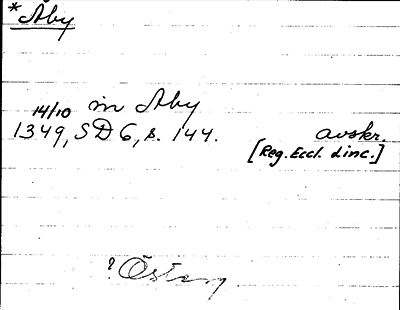 *Åby
in Aby
14/10
1349, SD 6, s. 144. avskr.
[Reg. Eccl. Linc.]
?